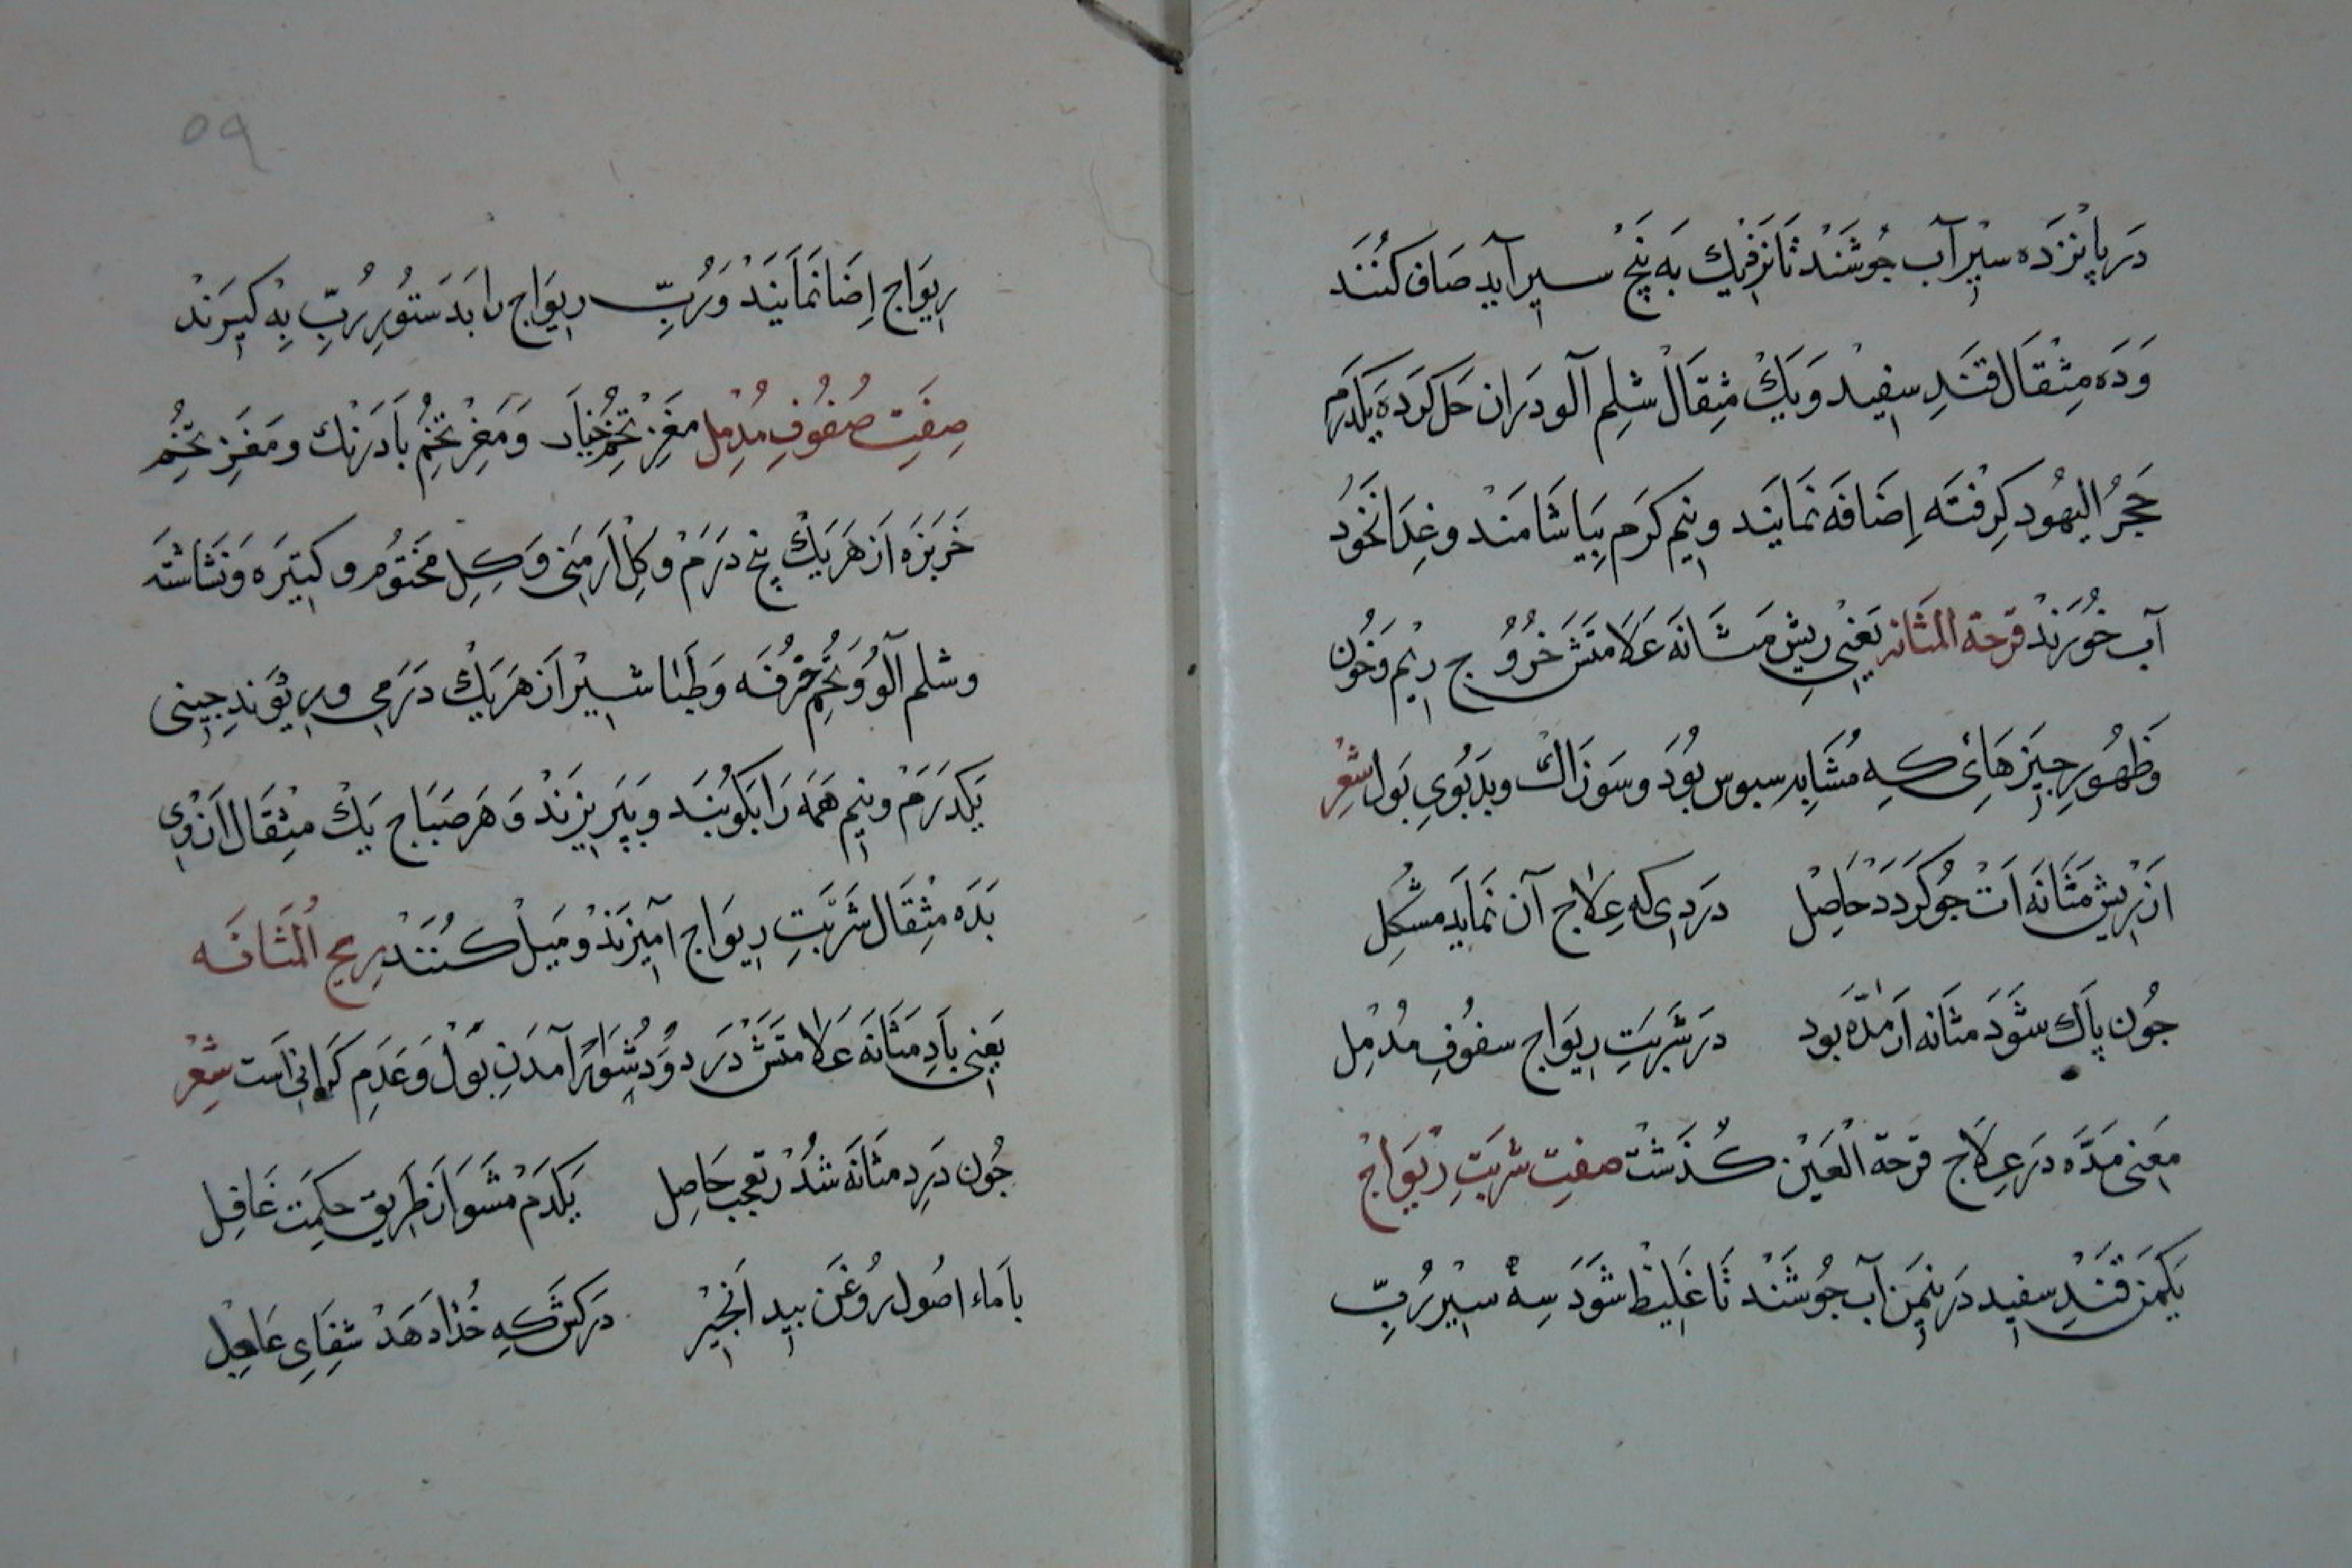 دَرپانزَده سیْر آب جُوشَنْد تَا نَزدِیك بَه پَنج سیر آید صَاف کُنَند
وَدَه مِثْقَال قَندِ سفِید وَیَكْ مِثقَالْ شلِم آلو دَران حَل کَردَه یَکدَرَم
حَجَرُ الیَهُود کِرِفْتَه اِضَافَه نَمایَند ونِیم کَرَم بِیَاشَامَنْد وغِدَا نَخُود
آب خُورَنْد قرحَة المَثَانه یَعْنِی رِیشِ مَثَانَه عَلَامَتَش خُرُوُج رِیْم وَخُون
وَظُهُورِ چِیْزهَائ کِه مُشَابِه سبوس بُوَد وسَوزَاكْ وبَدبُویِ بَول شِعْر
اَز رِیْشِ مَثَانَه اَتْ چُو کَرْدَدْ حَاصِلْ دَردِی کِه عِلَاج آن نَمَایَد مشکِل
چُون پَاك شَوَدَ مثَانَه اَز مِدَّه بَود دَر شَربَتِ رِیوَاج سفُوفِ مُدْمِل
مَعنی مَدَّه دَر عِلَاج قرحة العَیْن کُذَشْت صفتِ شَربَتِ رِیوَاجْ
یَکمَن قَنْدِ سفِید دَر نِیمَن آب جُوشَنْد تَا غَلِیظْ شَوَدَ سِهْ سیْر رُبِّ
رِیوَاج اِضَا نَمایَنَدْ وَرُبِّ رِیوَاج را بَدَستُورِ رُبِّ بِهْ کِیرَنْد
صِفَتِ صُفُوفِ مُدْمِل مغَزِ تخُمِ خِیَار وَمَغْزِ تخُمِ بَادَرَنْك ومَغَزِ تخُمِ
خَربَزَه اَز هَریَكْ پنج دَرَمْ وکِلِ اَرمَنِی وَکِلِ مَختُوم وکتِیَرَه وَنَشَاشتَه
وشلم آلو وَتُخْمِ خُرفَه وَطَبَاشِیْر اَز هَریَكْ دَرَمِی ورِیَوندِ چِینی
یَکدَرَمْ ونِیم هَمَه رَا بَکوُبَند وبِپَریزَنْد وَهَر صَبَاح یَكْ مثِقَال اَزْوِی
بَدَه مثِقَال شَرَبَتِ رِیوَاج آمیزَنْد ومَیلْ کُنَنَدْ رِیح المَثَانَه
یَعنِی بَادِ مَثَانَه عَلَامَتَش دَرد وَدُشوَار آمدَنِ بَولْ وَعَدَمِ کَرانی اَست شِعْر
چُون دَردِ مثَانَه شُدْ رتعجب حَاصِل یَکدَمْ مَشَو اَز طَرِیقِ حکِمَت غَافِل
بَا مَاء اصُول رُوغَن بید اَنجیْر دَرکَش کِه خُدَا دَهَدْ شِفَایِ عَاجِل